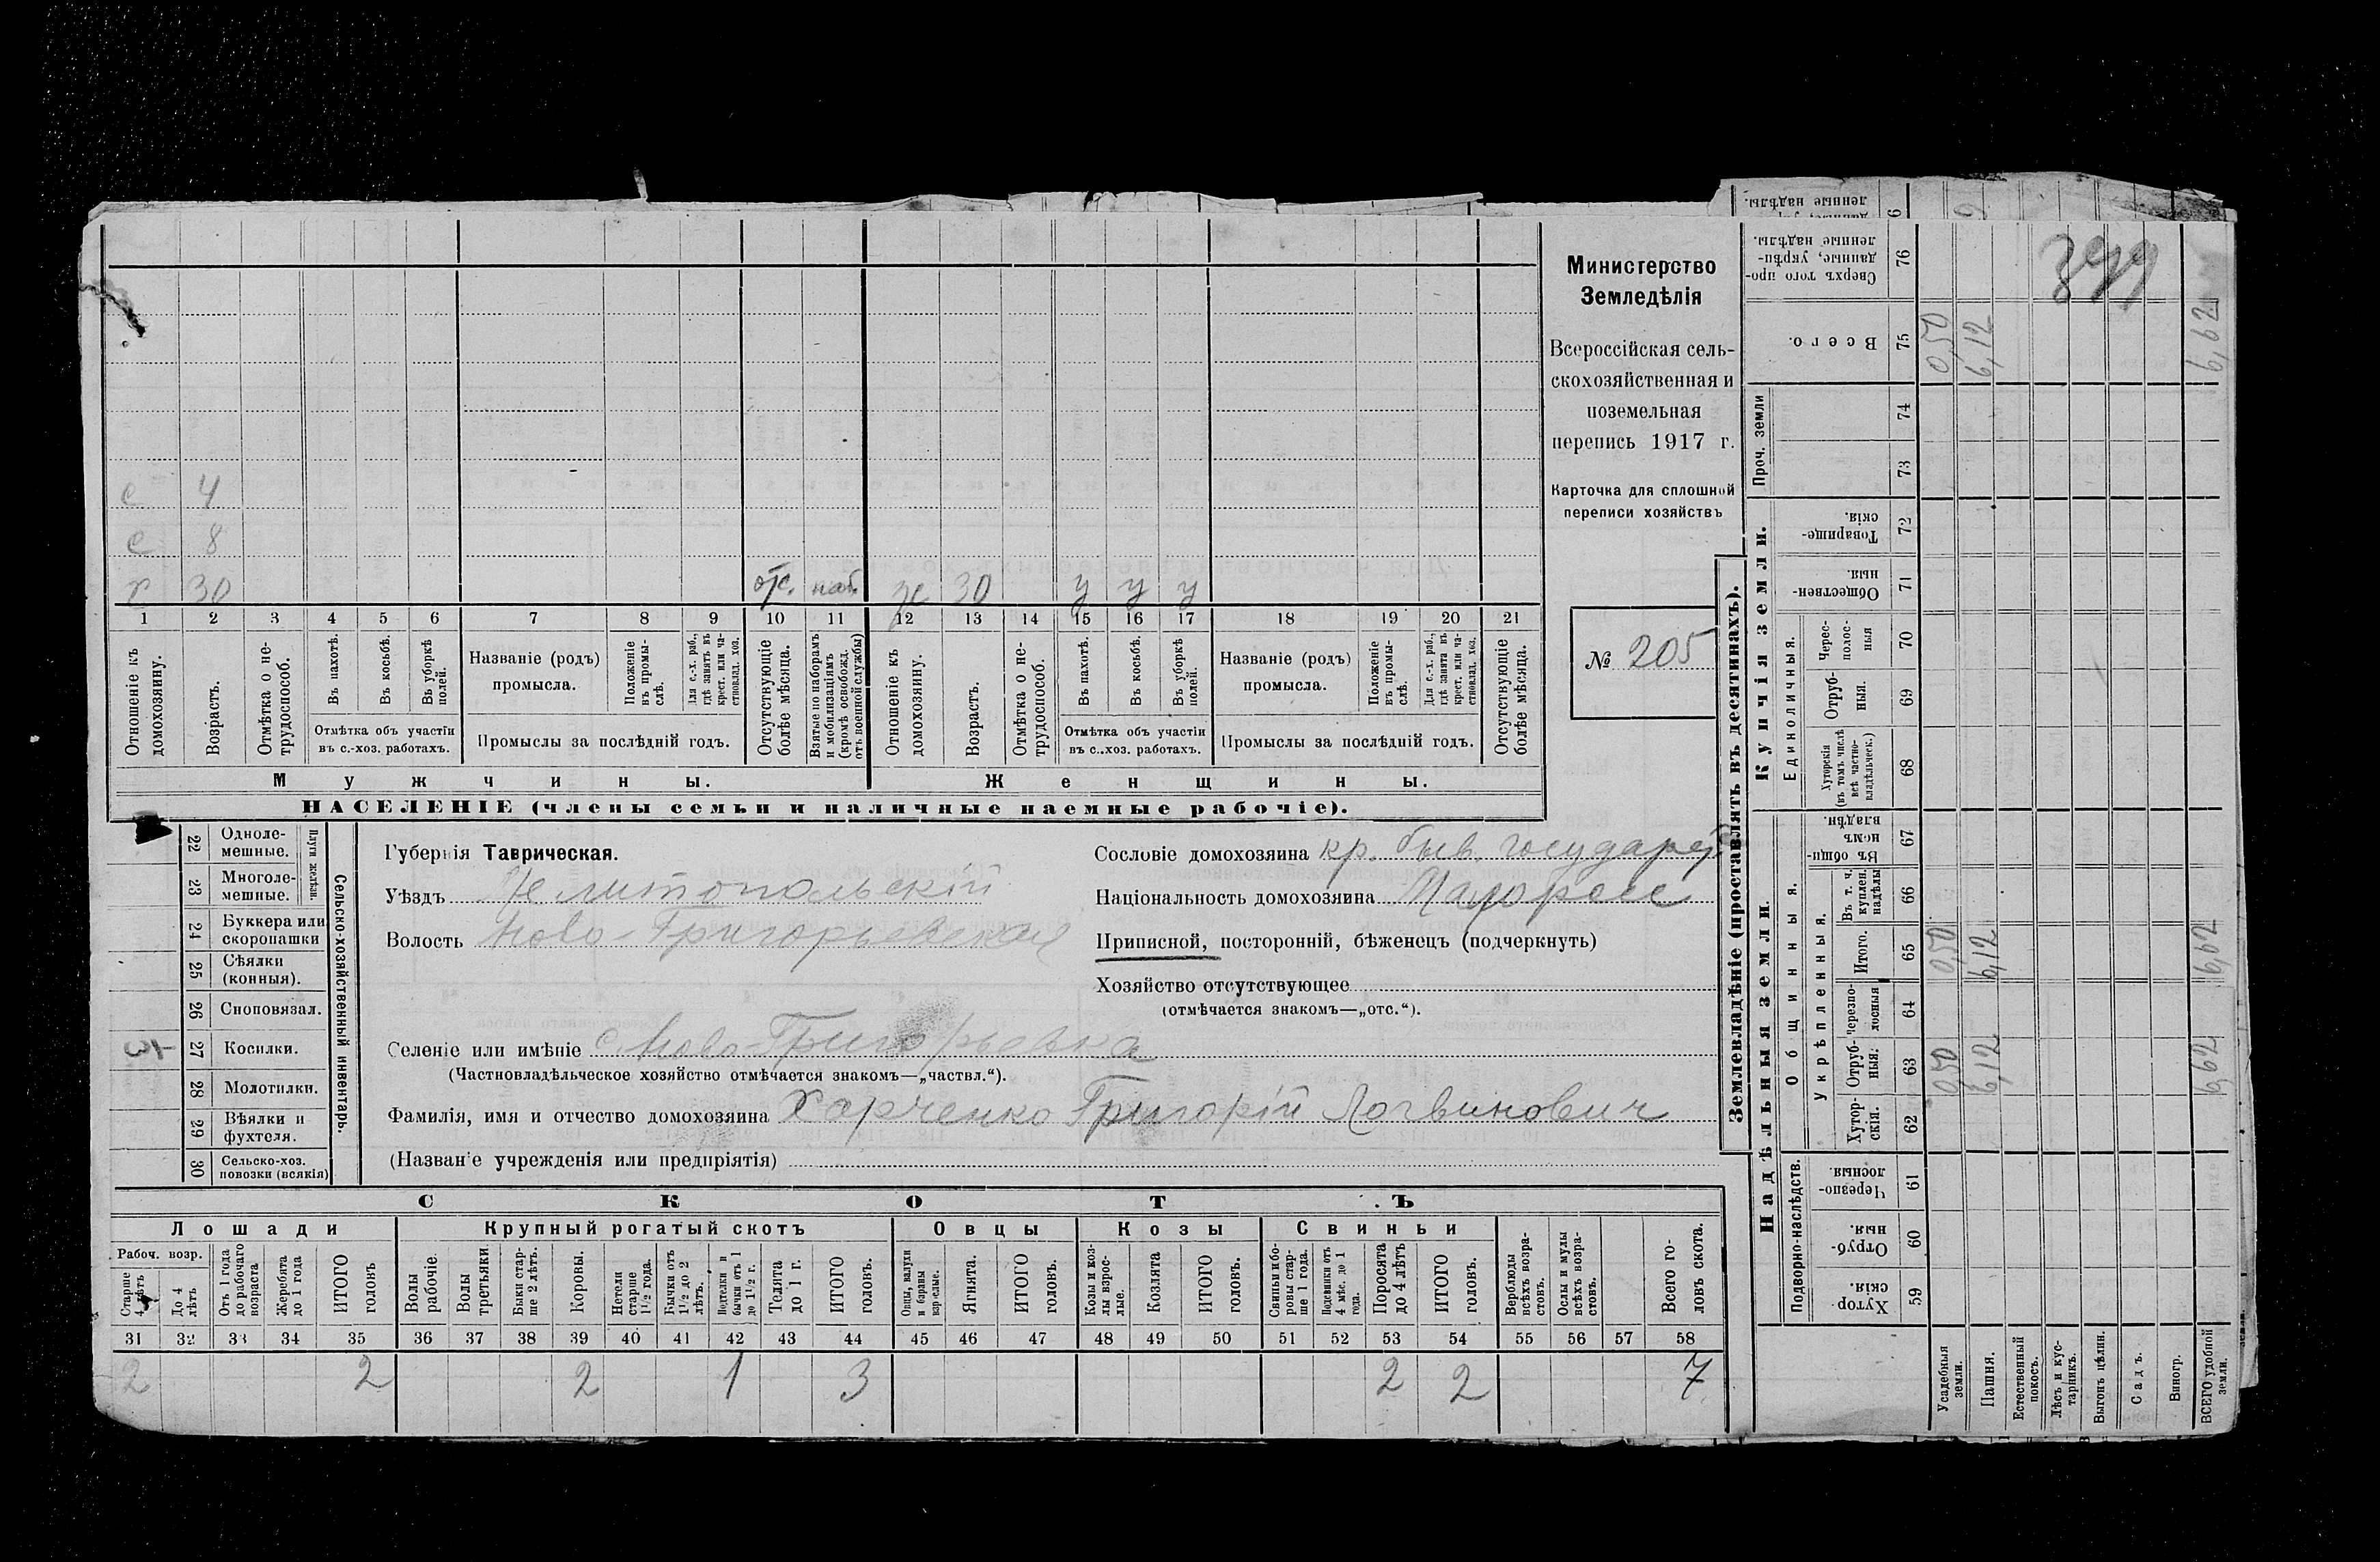 Министерство
Земледѣлія
Всероссійская сель-
скохозяйственная и
поземельная
перепись 1917 г.
Карточка для сплошной
переписи хозяйствъ
№ 205
с 4
с 8
х 30 отс. наб. ж 30 у у у
1 2 3 4 5 6 7 8 9 10 11 12 13 14 15 16 17 18 19 20 21
Отношеніе къ домохозяину.
Возрастъ.
Отмѣтка о не-трудоспособ.
Въ пахотѣ.
Въ косьбѣ.
Въ уборкѣ полей.
Отмѣтка объ участіи
въ с.-хоз. работахъ.
Названіе (родъ)
промысла.
Положеніе въ промы-слѣ.
Для с.-х. раб., гдѣ занятъ въ крест. или ча-стновлад. хоз.
Промыслы за послѣдній годъ.
Отсутствующіе болѣе мѣсяца.
Взятые по наборамъ и мобилизаціямъ (кромѣ освобожд. отъ военной службы)
Отношеніе къ домохозяину.
Возрастъ.
Отмѣтка о не-трудоспособ.
Въ пахотѣ.
Въ косьбѣ.
Въ уборкѣ полей.
Отмѣтка объ участіи
въ с..хоз. работахъ.
Названіе (родъ)
промысла.
Положеніе въ промы-слѣ.
Для с.-х. раб., гдѣ занята въ крест. или ча-стновлад. хоз.
Промыслы за послѣдній годъ.
Отсутствующіе болѣе мѣсяца.
Мужчины.
Женщины.
НАСЕЛЕНІЕ (члены семьи и наличные наемные рабочіе).
Сельско-хозяйственный инвентарь.
Плуги желѣзн.
22 Одноле-мешные.
23 Многоле-мешные.
24 Буккера или скоропашки
25 Сѣялки (конныя).
26 Сноповязал.
27 Косилки.
28 Молотилки.
29 Вѣялки и фухтеля.
30 Сельско-хоз. повозки (всякія)
Губернія Таврическая.
Уѣздъ Мелитопольскій
Волость Ново-Григорьевская
Сословіе домохозяина кр. быв. государ
Національность домохозяина Малоросс
Приписной, посторонній, бѣженецъ (подчеркнуть)
Хозяйство отсутствующее
(отмѣчается знакомъ—„отс.“).
Селеніе или имѣніе с Ново-Григорьевка
(Частновладѣльческое хозяйство отмѣчается знакомъ—„частвл.“).
Фамилія, имя и отчество домохозяина Харченко Григорій Логвинович
(Названіе учрежденія или предпріятія)
СКОТЪ
Лошади
Крупный рогатый скотъ
Овцы
Козы
Свиньи
Рабоч. возр.
Старше 4 лѣтъ
До 4 лѣтъ
Отъ 1 года до рабочаго возраста
Жеребята до 1 года
ИТОГО головъ
Волы рабочіе.
Волы третьяки.
Быки стар-ше 2 лѣтъ.
Коровы.
Нетели старше 1½ года.
Бычки отъ 1½ до 2 лѣтъ.
Подтелки и бычки отъ 1 до 1½ г.
Телята до 1 г.
ИТОГО головъ.
Овцы, валухи и бараны взрослые.
Ягнята.
ИТОГО головъ.
Козы и коз-лы взрос-лые.
Козлята
ИТОГО головъ.
Свиньи и бо-ровы стар-ше 1 года.
Подсвинки отъ 4 мѣс. до 1 года.
Поросята до 4 лѣтъ
ИТОГО головъ.
Верблюды всѣхъ возра-стовъ.
Ослы и мулы всѣхъ возра-стовъ.
Всего го-ловъ скота.
31 32 33 34 35 36 37 38 39 40 41 42 43 44 45 46 47 48 49 50 51 52 53 54 55 56 57 58
2 2 2 1 3 2 2 7
Землевладѣніе (проставлять въ десятинахъ).
Надѣльныя земли.
Купчія земли.
Проч. земли
Подворно-наслѣдств.
Общинныя.
Укрѣпленныя.
Единоличныя.
Хутор-скія. 59
Отруб-ныя. 60
Черезпо-лосныя. 61
Хутор-скія. 62
Отруб-ныя. 63
Черезпо-лосныя 64
Итого. 65
Въ т. ч. куплен. надѣлы 66
Въ общи-номъ владѣн. 67
Хуторскія (въ томъ числѣ всѣ частно-владѣльческ.) 68
Отруб-ныя. 69
Черес-полос-ныя 70
Обществен-ныя. 71
Товарище-скія. 72
73
74
Всего. 75
Сверхъ того про-данные, укрѣп-ленные надѣлы. 76
Усадебныя земли. 0,50 0,50 0,50
Пашня. 6,12 6,12 6,12
Естественный покосъ.
Лѣсъ и кус-тарникъ.
Выгонъ цѣлин.
Садъ.
Виногр.
ВСЕГО удобной земли. 6,62 6,62 6,62
ленные надѣлы.